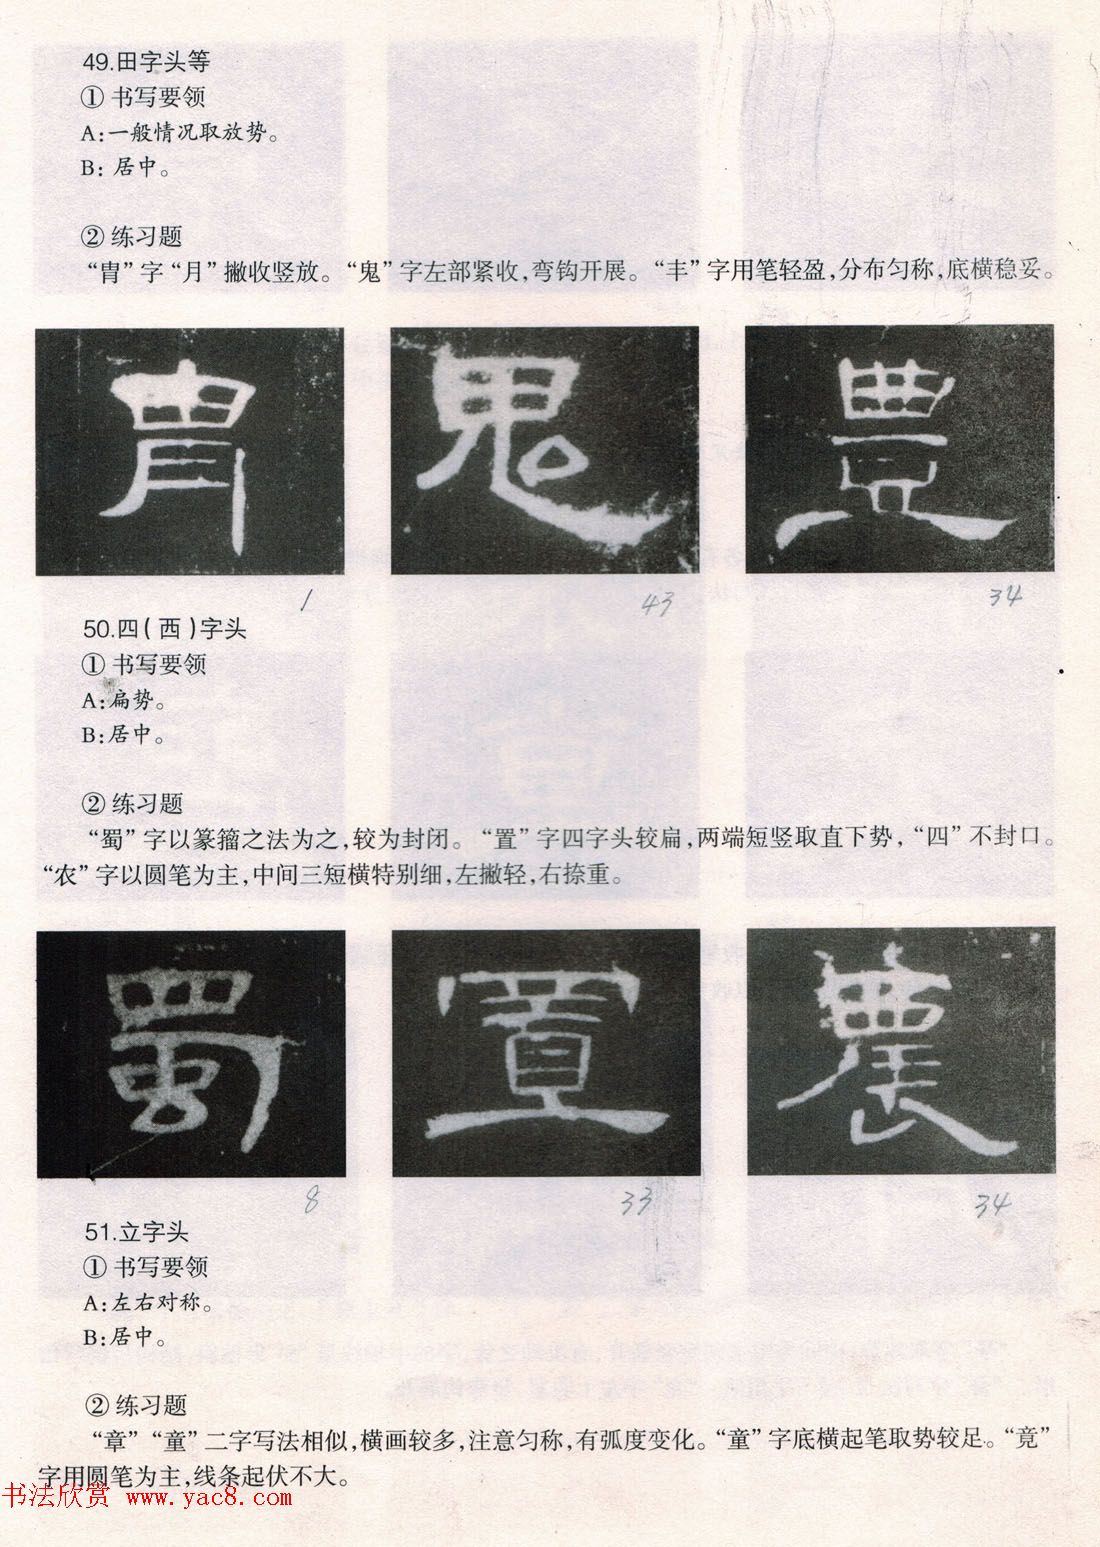 49.田字头等
① 书写要领
A:一般情况取放势。
B: 居中。
② 练习题
“胄”字“月”撇收竖放。“鬼”字左部紧收,弯钩开展。“丰”字用笔轻盈,分布匀称,底横稳妥。
胄 鬼 豊
1 43 34
50.四(西)字头
① 书写要领
A:扁势。
B:居中。
② 练习题
“蜀”字以篆籀之法为之,较为封闭。“置”字四字头较扁,两端短竖取直下势,“四”不封口。
“农”字以圆笔为主,中间三短横特别细,左撇轻,右捺重。
蜀 置 農
8 33 34
51.立字头
① 书写要领
A:左右对称。
B:居中。
② 练习题
“章”“童”二字写法相似,横画较多,注意匀称,有弧度变化。“童”字底横起笔取势较足。“竟”
字用圆笔为主,线条起伏不大。
书法欣赏 www.yac8.com